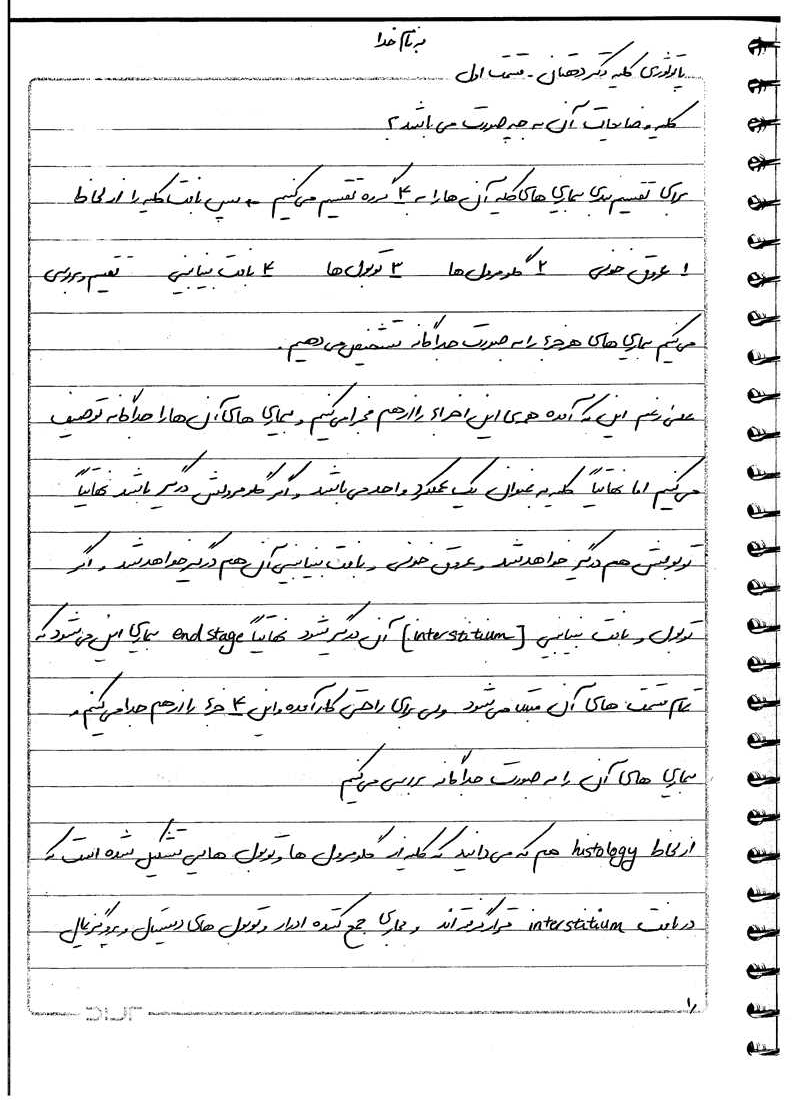 به نام خدا
پاتولوژی کلیه دکتر دهقان - قسمت اول
کلیه و ضایعات آن به چه صورت می باشد؟
برای تقسیم بندی بیماری های کلیه آن ها را به ۴ گروه تقسیم می کنیم پس بافت کلیه را از لحاظ
۱ عروق خونی ۲ گلومرول ها ۳ توبول ها ۴ بافت بینابینی تقسیم و بررسی
می کنیم بیماری های هر جزء را به صورت جداگانه تشخیص می دهیم.
علی رغم این که آمده همه ی این اجزاء را از هم مجزا می کنیم و بیماری های آن ها را جداگانه توصیف
می کنیم اما نهایتاً کلیه به عنوان یک عملکرد واحد می باشد و اگر گلومرولش درگیر باشد نهایتاً
توبولش هم درگیر خواهد شد و عروق خونی و بافت بینابینی آن هم درگیر خواهد شد و اگر
توبول و بافت بینابینی [interstitium] آن درگیر شود نهایتاً end stage بیماری این می شود که
تمام قسمت های آن مبتلا می شود ولی برای راحتی کار آمده و این ۴ جزء را از هم جدا می کنیم و
بیماری های آن را به صورت جداگانه بررسی می کنیم
از لحاظ histology هم که می دانید که کلیه از گلومرول ها و توبول هایی تشکیل شده است که
در بافت interstitium قرار گرفته اند و مجاری جمع کننده ادرار و توبول های دیستال و پروگزیمال
۱